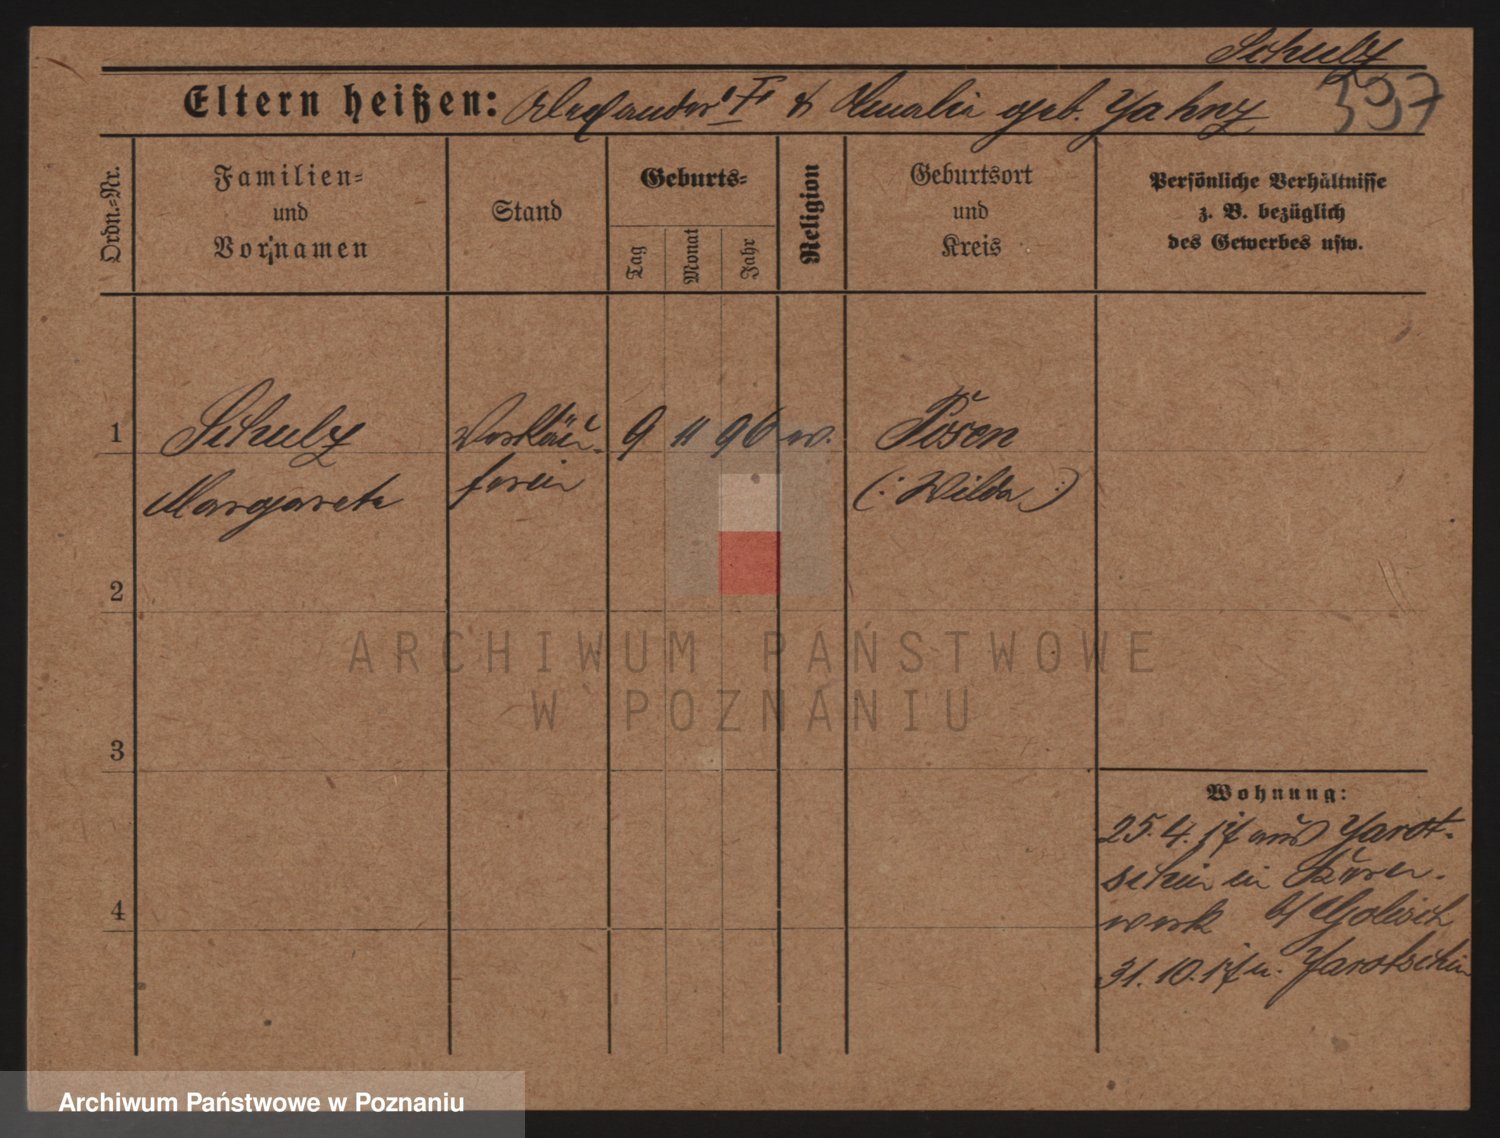 Schulz
397
Eltern heißen: Alexander & Amalie geb. Jahnz
Ordn.=Nr.
Familien=
und
Vornamen
Stand
Geburts=
Tag
Monat
Jahr
Religion
Geburtsort
und
Kreis
Persönliche Verhältnisse
z. B. bezüglich
des Gewerbes usw.
1
Schulz
Margarete
Verkäu-
ferin
9 11 96
Posen
(: Wilda :)
2
3
4
Wohnung:
25. 4. 17 aus Jarot-
schin in
werk b/
31. 10. 17 n. Jarotschin
ARCHIWUM PAŃSTWOWE
W POZNANIU
Archiwum Państwowe w Poznaniu